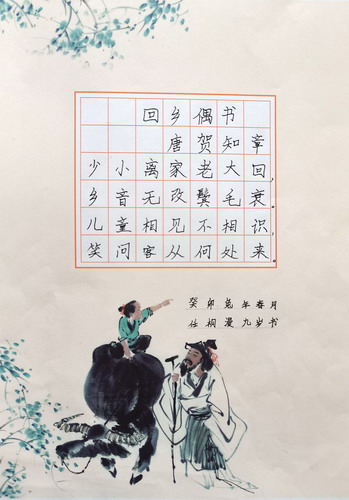 回乡偶书
唐贺知章
少小离家老大回，
乡音无改鬓毛衰。
儿童相见不相识，
笑问客从何处来。
癸卯兔年春月
任桐漫九岁书